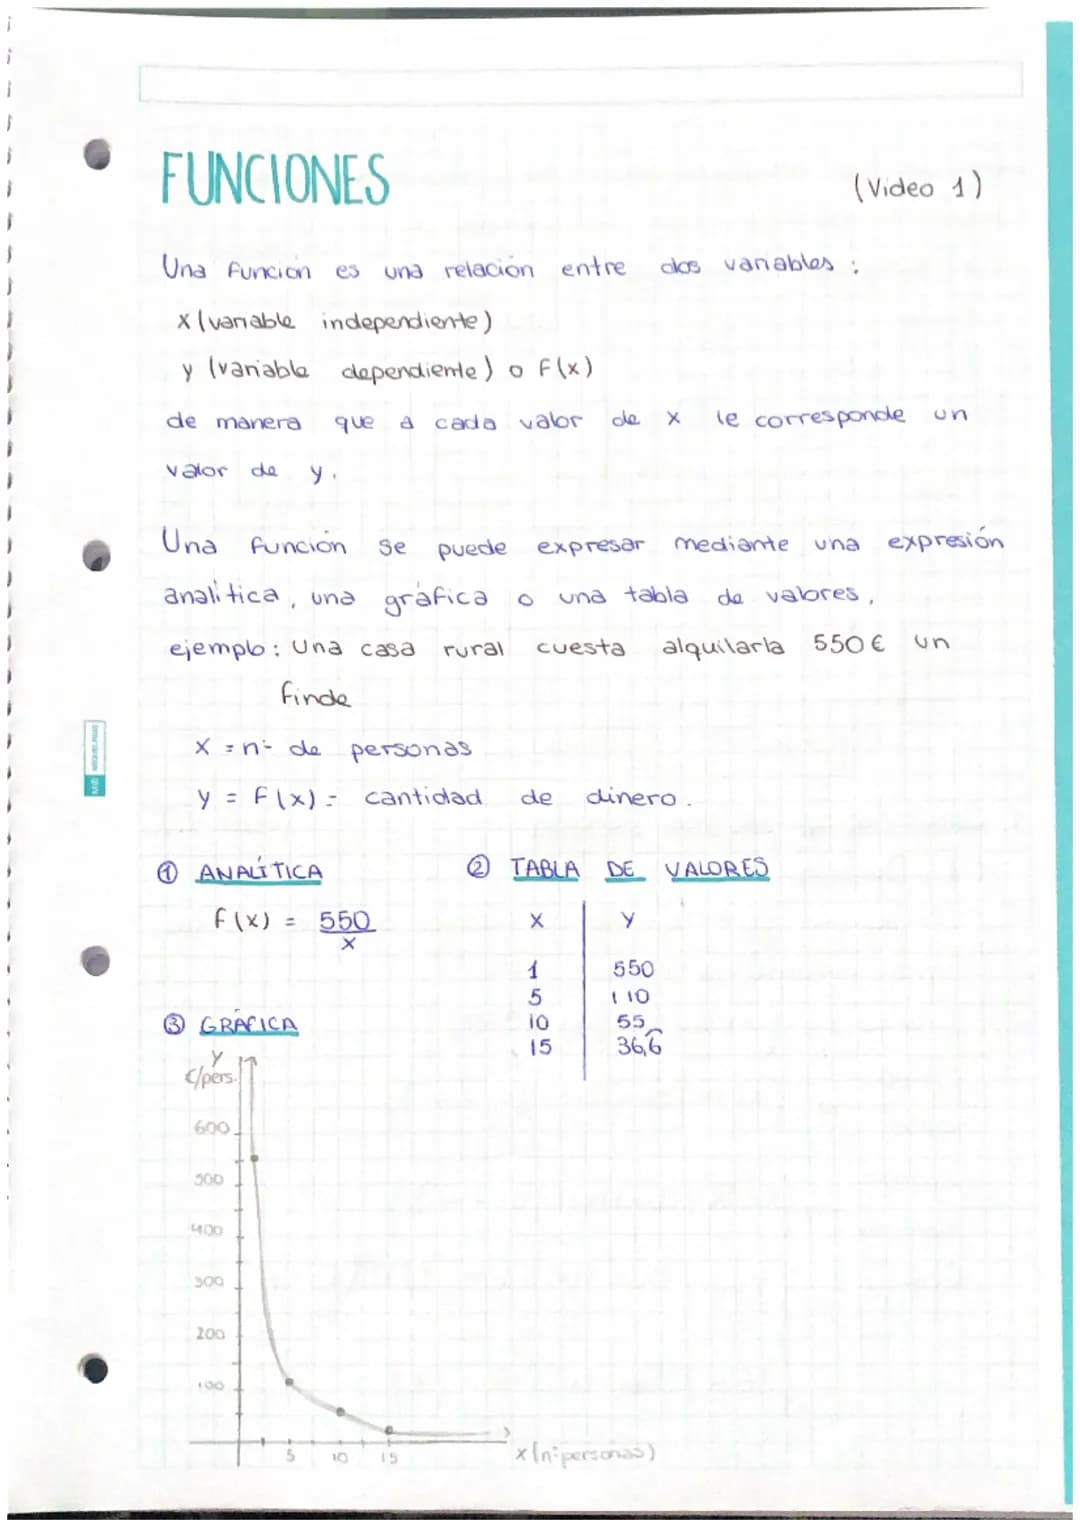 FUNCIONES
(Video 1)
Una función es una relación entre dos variables :
x (variable independiente)
y (variable dependiente) o F(x)
de manera que a cada valor de x le corresponde un
valor de y.
Una función se puede expresar mediante una expresión
analítica, una gráfica o una tabla de valores,
ejemplo: Una casa rural cuesta alquilarla 550 € un
finde
X = nº de personas
y = F(x) = cantidad de dinero.
① ANALÍTICA
f(x) = 550
x
② TABLA DE VALORES
X Y
1 550
5 110
10 55
15 36,6
③ GRÁFICA
Y
€/pers.
600
500
400
300
200
100
5 10 15
x (nº personas)